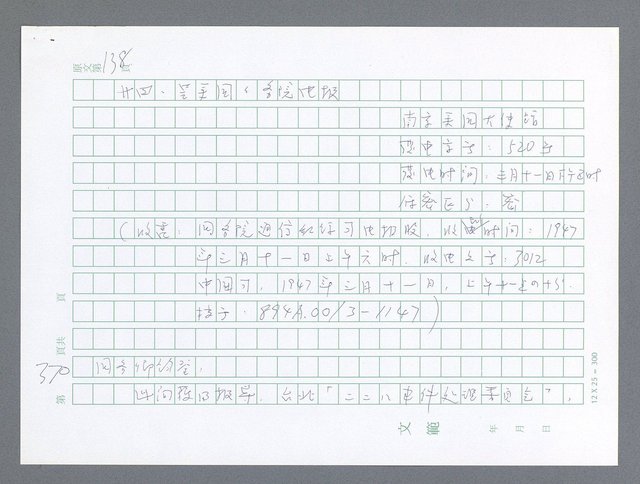 原文第138頁
廿四、呈美国国务院电报
南京美国大使馆
发电字号：520号
发电时间：三月十一日下午三时
保密区分：密
（收悉：国务院通信纪录司电切股，收电时间：1947
年三月十一日上午六时，收电文号：3012
中国司，1947年三月十一日，上午十一
档子：894A.00/3-1147）
国务卿钧鉴：
此间获得报导，台北「二二八事件处理委员会」，
370
第 頁共 頁
12X25=300
文範 年 月 日